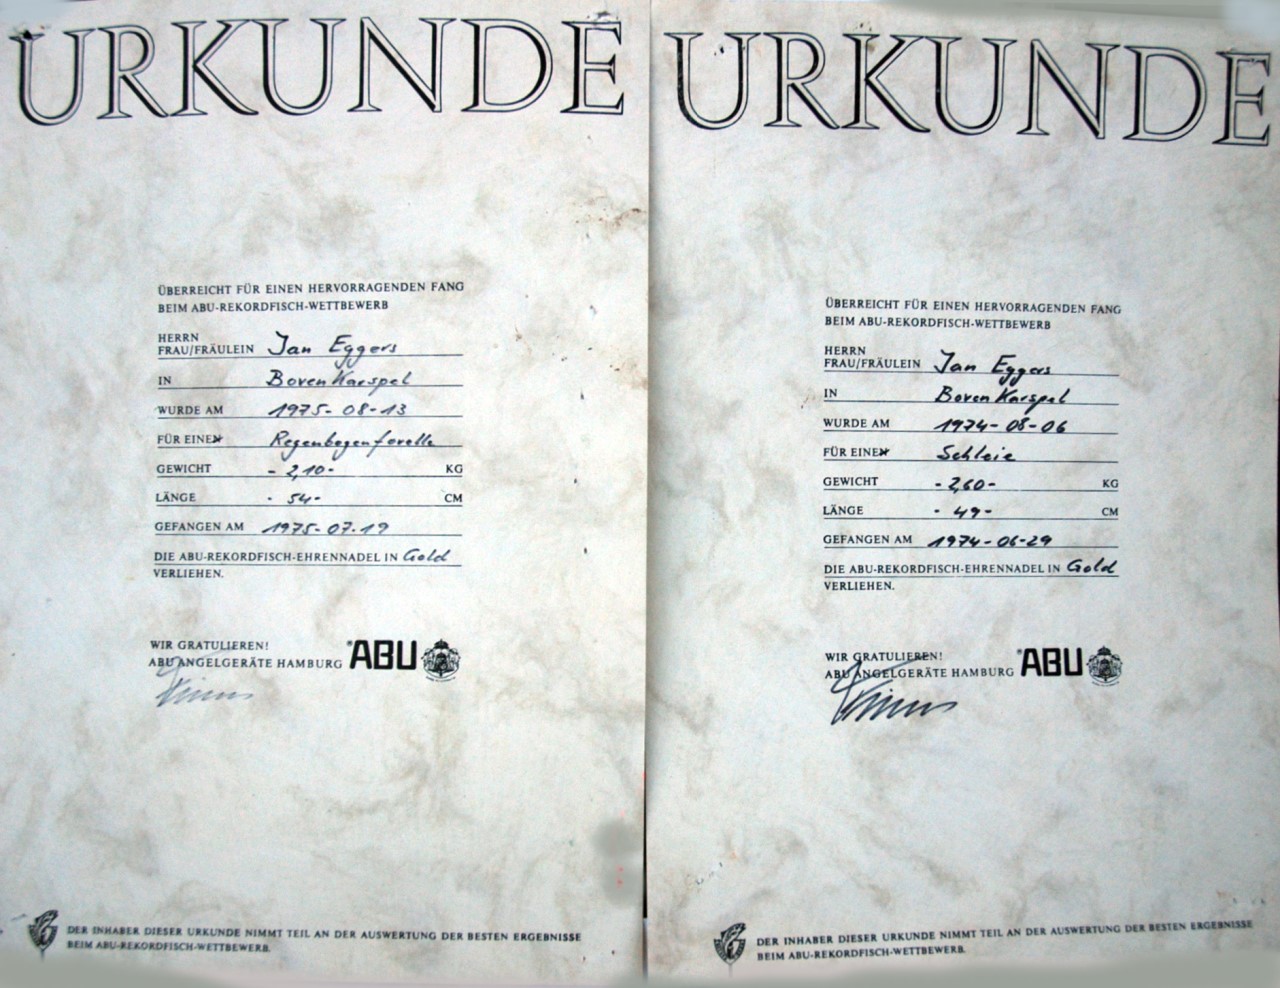 URKUNDE
ÜBERREICHT FÜR EINEN HERVORRAGENDEN FANG
BEIM ABU-REKORDFISCH-WETTBEWERB
HERRN
FRAU/FRÄULEIN Jan Eggers
IN BovenKarspel
WURDE AM 1975-08-13
FÜR EINEN Regenbogenforelle
GEWICHT - 2,10 - KG
LÄNGE - 54 - CM
GEFANGEN AM 1975-07-19
DIE ABU-REKORDFISCH-EHRENNADEL IN Gold
VERLIEHEN.
WIR GRATULIEREN!
ABU ANGELGERÄTE HAMBURG ABU
DER INHABER DIESER URKUNDE NIMMT TEIL AN DER AUSWERTUNG DER BESTEN ERGEBNISSE
BEIM ABU-REKORDFISCH-WETTBEWERB.
URKUNDE
ÜBERREICHT FÜR EINEN HERVORRAGENDEN FANG
BEIM ABU-REKORDFISCH-WETTBEWERB
HERRN
FRAU/FRÄULEIN Jan Eggers
IN BovenKarspel
WURDE AM 1974-08-06
FÜR EINEN Schleie
GEWICHT - 2,60 - KG
LÄNGE - 49 - CM
GEFANGEN AM 1974-06-29
DIE ABU-REKORDFISCH-EHRENNADEL IN Gold
VERLIEHEN.
WIR GRATULIEREN!
ABU ANGELGERÄTE HAMBURG ABU
DER INHABER DIESER URKUNDE NIMMT TEIL AN DER AUSWERTUNG DER BESTEN ERGEBNISSE
BEIM ABU-REKORDFISCH-WETTBEWERB.